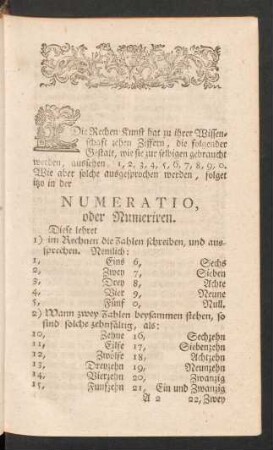 Die Rechen-Kunst hat zu ihrer Wissen-
schaft zehen Ziffern, die folgender
Gestalt, wie sie zur selbigen gebraucht
werden, aussehen. 1, 2, 3, 4, 5, 6, 7, 8, 9, 0.
Wie aber solche ausgesprochen werden, folget
itzo in der
NUMERATIO,
oder Numeriren.
Diese lehret
1) im Rechnen die Zahlen schreiben, und aus-
sprechen. Nemlich:
1, Eins 6, Sechs
2, Zwey 7, Sieben
3, Drey 8, Achte
4, Vier 9, Neune
5, Fünf 0, Null.
2) Wann zwey Zahlen beysammen stehen, so
sind solche zehnfältig, als:
10, Zehne 16, Sechzehn
11, Eilfe 17, Siebenzehn
12, Zwölfe 18, Achtzehn
13, Dreyzehn 19, Neunzehn
14, Vierzehn 20, Zwanzig
15, Funfzehn 21, Ein und Zwanzig
A 2 22, Zwey